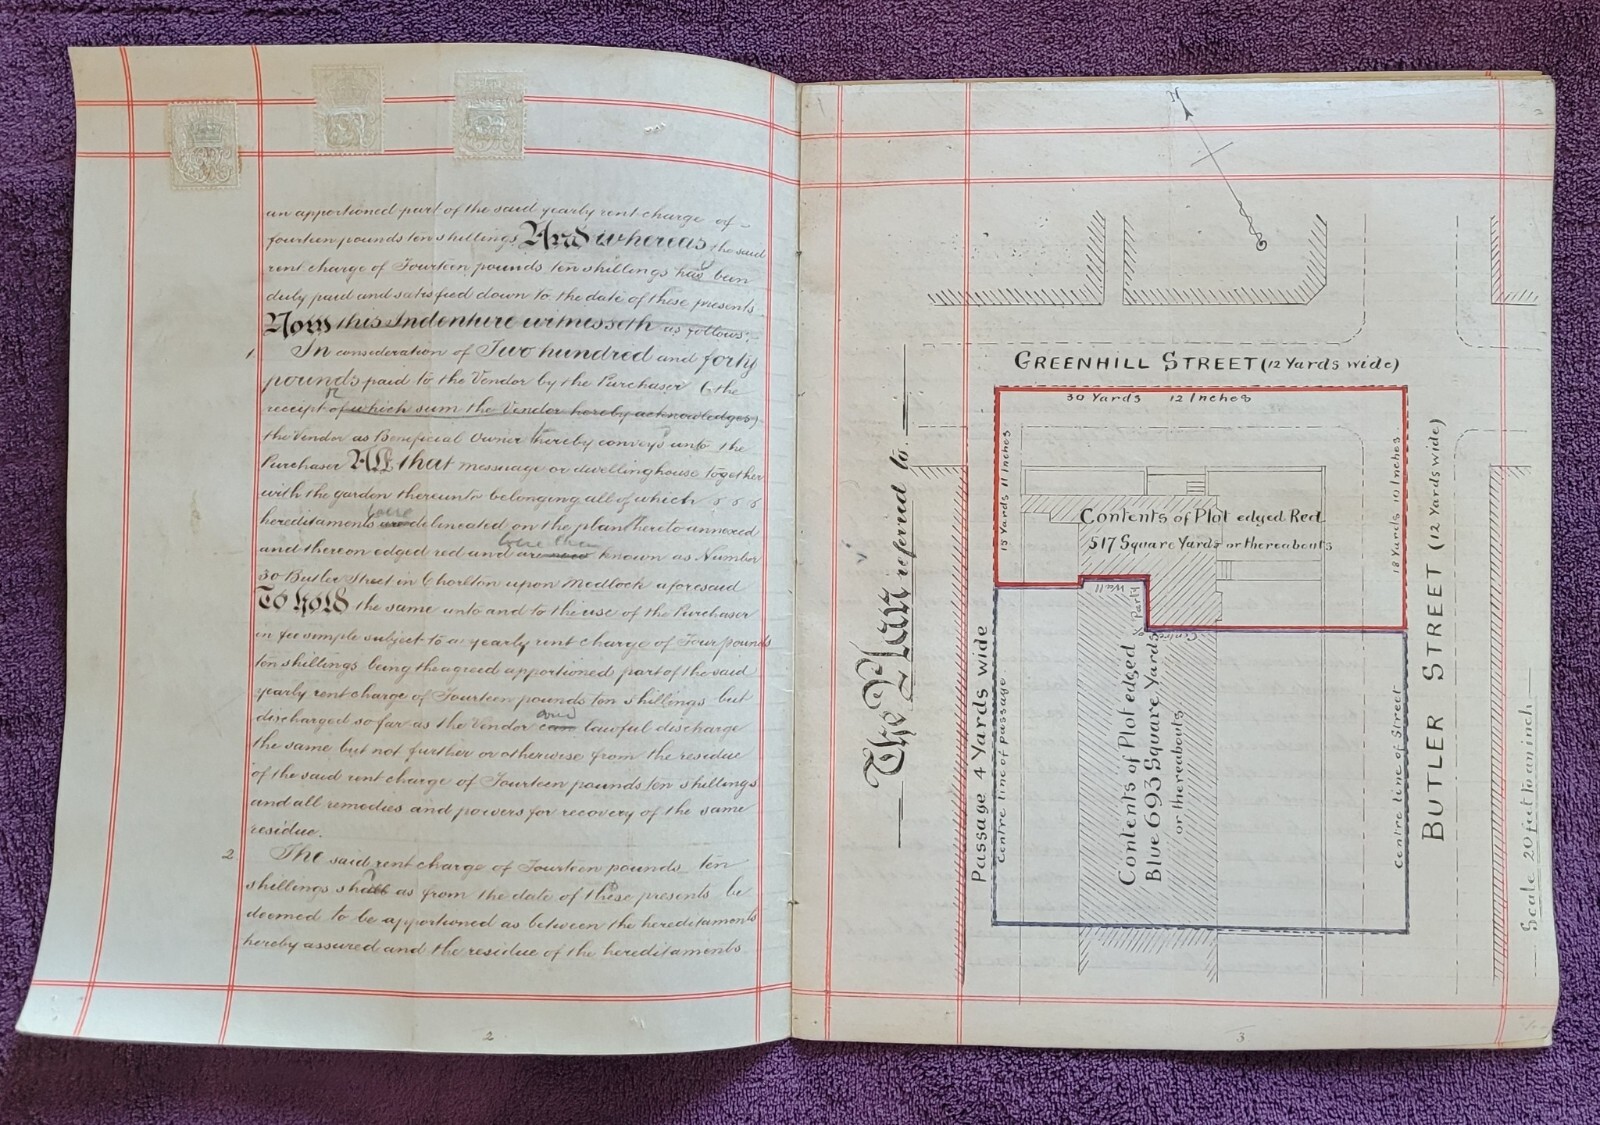 an apportioned part of the said yearly rent charge of
fourteen pounds ten shillings And whereas the said
rent charge of Fourteen pounds ten shillings has been
duly paid and satisfied down to the date of these presents
Now this Indenture witnesseth as follows:-
1. In consideration of Two hundred and forty
pounds paid to the Vendor by the Purchaser (the
receipt of which sum the Vendor hereby acknowledges)
the Vendor as Beneficial Owner hereby conveys unto the
Purchaser All that messuage or dwellinghouse together
with the garden thereunto belonging all of which
hereditaments are delineated on the plan thereto annexed
and thereon edged red and were then are now known as Number
30 Butler Street in Chorlton upon Medlock aforesaid
To hold the same unto and to the use of the Purchaser
in fee simple subject to a yearly rent charge of Four pounds
ten shillings being the agreed apportioned part of the said
yearly rent charge of Fourteen pounds ten shillings but
discharged so far as the Vendor can lawful discharge
the same but not further or otherwise from the residue
of the said rent charge of Fourteen pounds ten shillings
and all remedies and powers for recovery of the same
residue.
2. The said rent charge of Fourteen pounds ten
shillings shall as from the date of these presents be
deemed to be apportioned as between the hereditaments
hereby assured and the residue of the hereditaments
2
The Plan referred to.
GREENHILL STREET (12 Yards wide)
30 Yards 12 Inches
15 Yards 11 Inches
18 Yards 10 Inches
Contents of Plot edged Red
517 Square Yards or thereabouts
Centre of Party Wall
Contents of Plot edged
Blue 693 Square Yards
or thereabouts
Passage 4 Yards wide
Centre line of Passage
Centre line of Street
BUTLER STREET (12 Yards wide)
Scale 20 feet to an inch
3